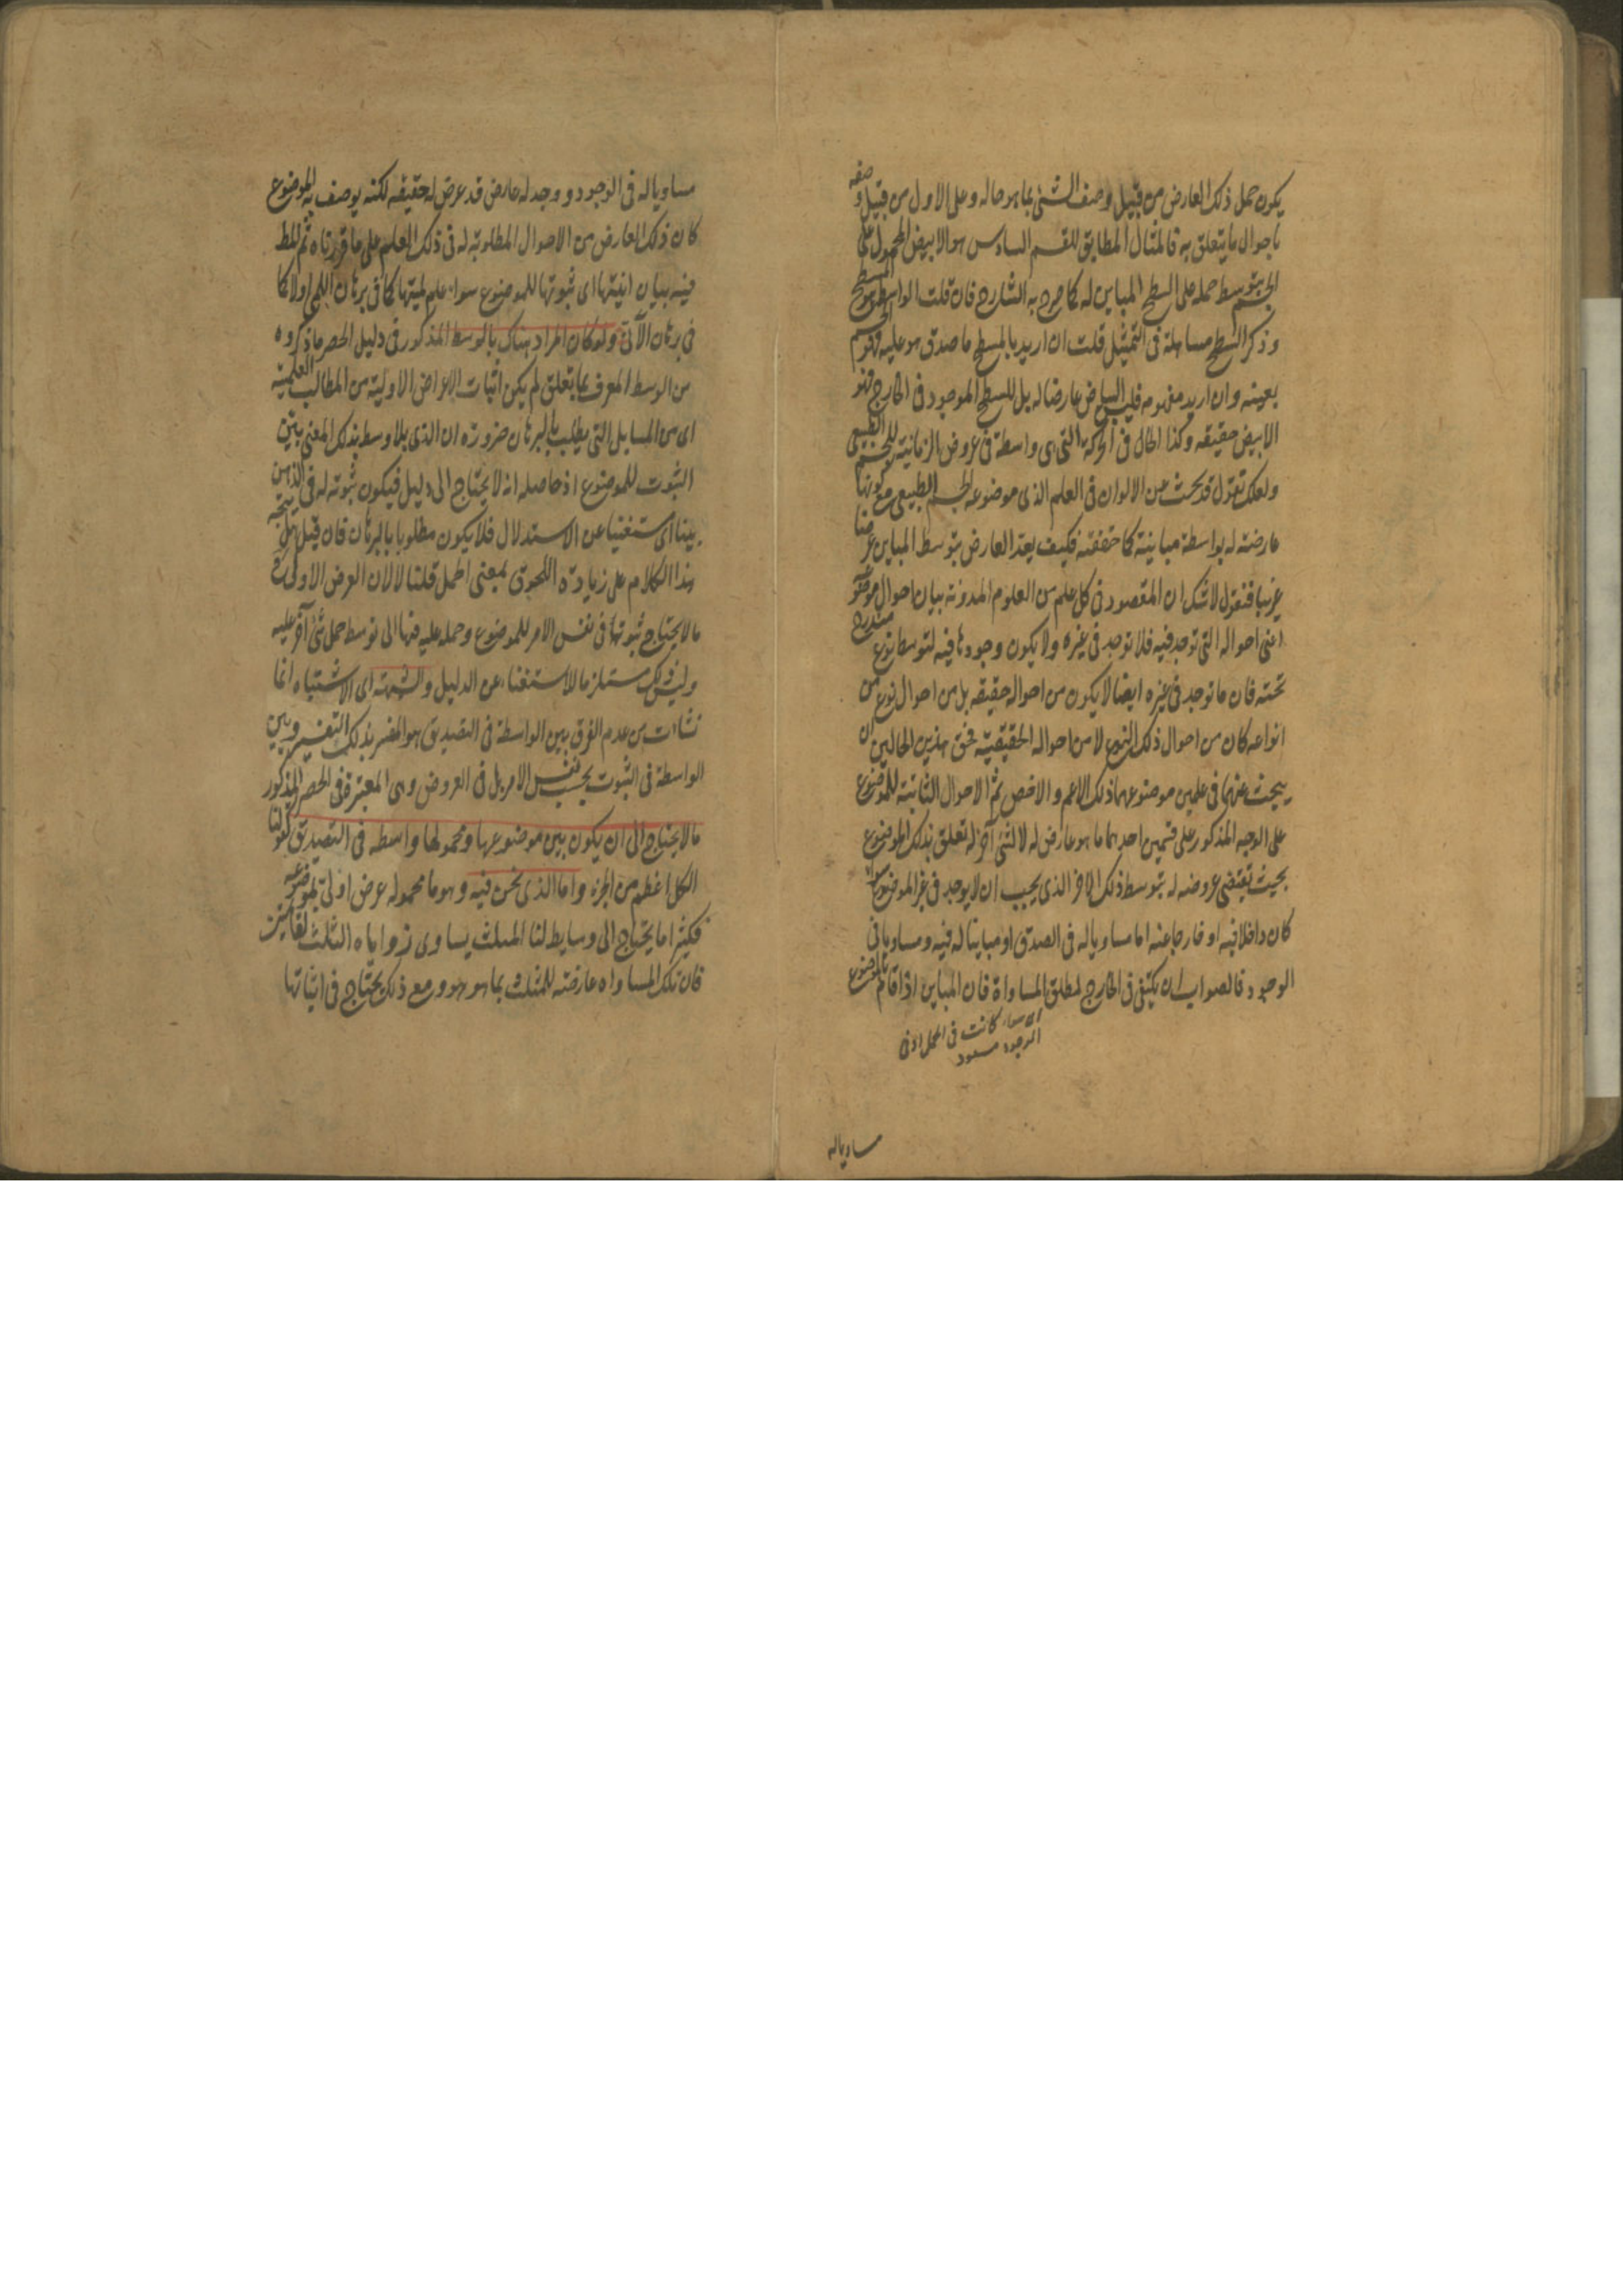 يكون حمل ذلك العارض من قبيل وصف الشئ بما هو حاله وعلى الاول من قبيل وصفه
باحوال ما يتعلق به فالمثال المطابق للقسم السادس هو الابيض المحمول على
الجسم بتوسط حمله على السطح المباين له كما صرح به الشارح فان قلت الواسطة هو المسطح
وذكر السطح مساهلة فى التمثيل قلت ان اريد بالمسطح ما صدق هو عليه فهو الجسم
بعينه وان اريد مفهومه فليس البياض عارضا له بل للسطح الموجود فى الخارج فهو
الابيض حقيقه وكذا الحال فى الحركة التى هى واسطة فى عروض الزمانية للجسم الطبيعى
ولعلك تقول قد يبحث عن الالوان فى العلم الذى موضوعه الجسم الطبيعى مع كونها
عارضته له بواسطة مباينة كما حققته فكيف يعد العارض بتوسط المباين عرضا
غريبا فنقول لاشك ان المقصود فى كل علم من العلوم المدونة بيان احوال موضوعه
اعنى احواله التى توجد فيه فلا توجد فى غيره ولا يكون وجودها فيه لتوسط نوع مندرج
تحته فان ما توجد فى غيره ايضا لا يكون من احواله حقيقه بل من احوال نوع من
انواعه كان من احوال ذلك النوع لا من احواله الحقيقية فحق هذين الحالين ان
يبحث عنهما فى علمين موضوعهما ذلك الاعم والاخص ثم الاحوال الثابتة للموضوع
على الوجه المذكور على قسمين احدهما ما هو عارض له لا لشئ آخر له تعلق بذلك الموضوع
بحيث تقتضى عروضه له بتوسط ذلك الاخر الذى يجب ان لا يوجد فى غير الموضوع سواء
كان داخلا فيه او خارجا عنه اما مساويا له فى الصدق او مباينا له فيه ومساويا فى
الوجود فالصواب ان يكتفى فى الخارج بمطلق المساواة فان المباين اذا قام بالموضوع
سواء كانت فى الحمل او فى
الوجود
مساويا له
مساويا له فى الوجود ووجد له عارض قد عرض له حقيقه لكنه يوصف به الموضوع
كان ذلك العارض من الاحوال المطلوبة له فى ذلك العلم على ما قررناه ثم المط
فيه بيان انيتها اى ثبوتها للموضوع سواء علم لميتها كما فى برهان اللم اولا كما
فى برهان الآن ولو كان المراد هناك بالوسط المذكور فى دليل الحصر ما ذكروه
من الوسط المعرف بما يتعلق لم يكن اثبات الاعراض الاولية من المطالب العلمية
اى من المسايل التى يطلب بالبرهان ضرورة ان الذى بلا وسط بذلك المعنى بين
الثبوت للموضوع اذ حاصله انه لا يحتاج الى دليل فيكون ثبوته له فى الذهن
بينا اى مستغنيا عن الاستدلال فلا يكون مطلوبا بالبرهان فان قيل هل يتجه
هذا الكلام على زيادة اللحوق بمعنى الحمل قلنا لا لان العرض الاولى
ما لا يحتاج ثبوتها فى نفس الامر للموضوع وحمله عليه فيها الى توسط حمل شئ آخر عليه
وليس ذلك مستلزما للاستغناء عن الدليل والشبهة اى الاشتباه انما
نشات من عدم الفرق بين الواسطة فى التصديق هو المفسر بذلك التفسير وبين
الواسطة فى الثبوت بحسب نفس الامر بل فى العروض وهى المعتبرة فى الحصر المذكور
ما لا يحتاج الى ان يكون بين موضوعها ومحمولها واسطه فى التصديق كقولنا
الكل اعظم من الجزء واما الذى نحن فيه وهو ما محموله عرض اولى لموضوعه
فكثيرا ما يحتاج الى وسايط لنا المثلث يساوى زواياه الثلث لقائمتين
فان تلك المساواه عارضته للمثلث بما هو هو ومع ذلك يحتاج فى اثباتها